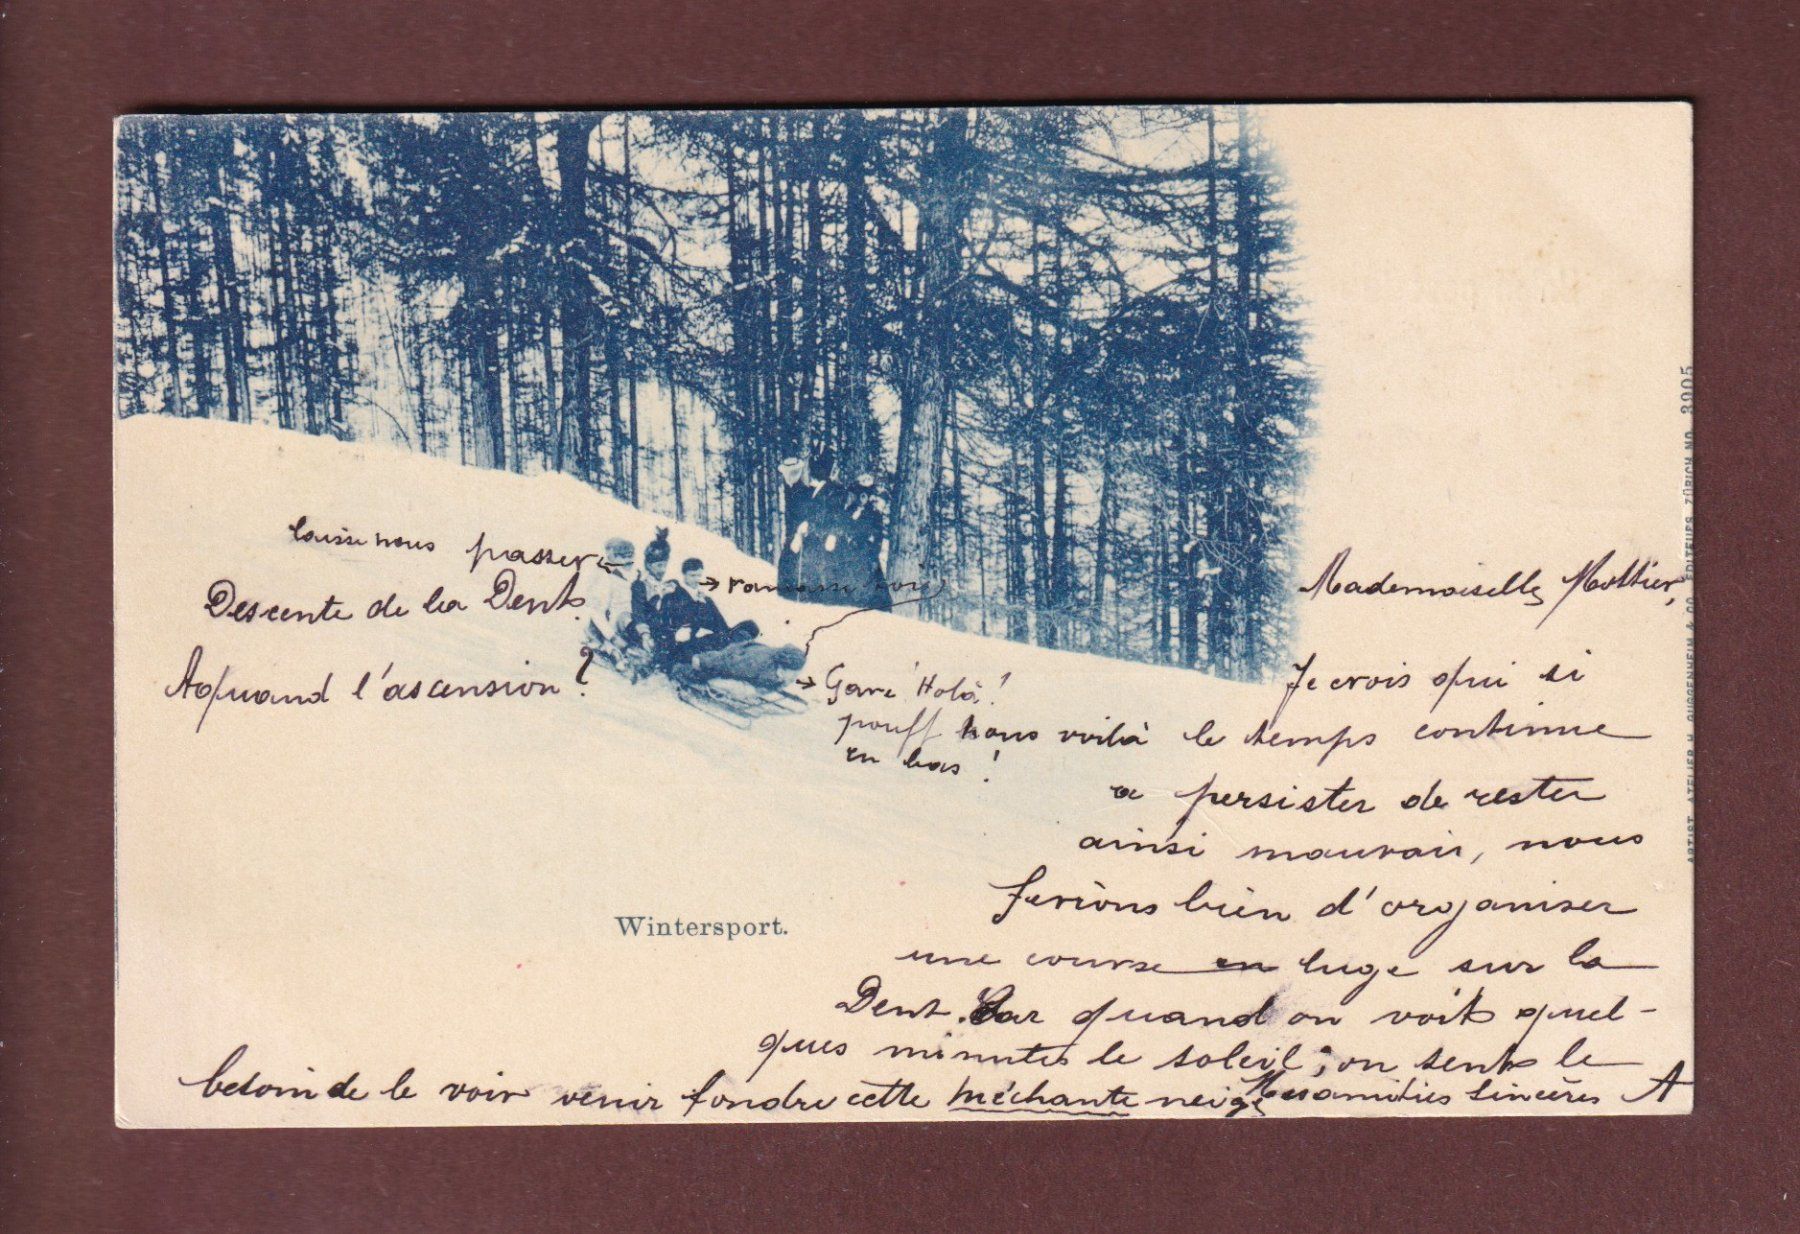 laisse nous passer
Descente de la Dent.
A quand l'ascension?
ramasse
Gare! Holà!
pouff nous voilà
en bas!
Wintersport.
Mademoiselle Mottier,
Je crois qui si
le temps continue
a persister de rester
ainsi mauvais, nous
ferions bien d'organiser
une course en luge sur la
Dent. Car quand on voit quel-
ques minutes le soleil, on sent le
besoin de le voir venir fondre cette méchante neige
Mes amitiés sincères A
ARTIST. ATELIER H. GUGGENHEIM & CO. EDITEURS, ZÜRICH. NO. 3905